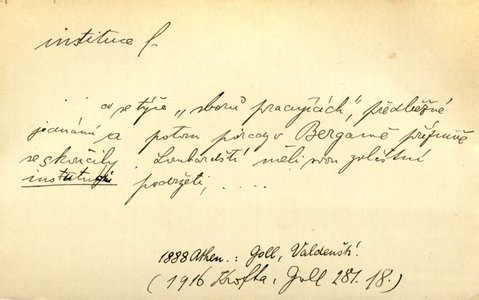 instituce f.
co se týče „sborů pracujících", předběžné
jednání a potom porady v Bergamě příznivě
se skončily. Lombardští měli svou zvláštní
instituci podržeti, ....
1888 Athen.: Goll, Valdenští.
(1916 Krofta, Goll 281. 18.)